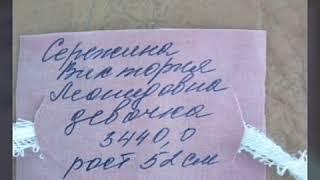 Сережина
Виктория
Леонидовна
девочка
3440,0
рост 52 см